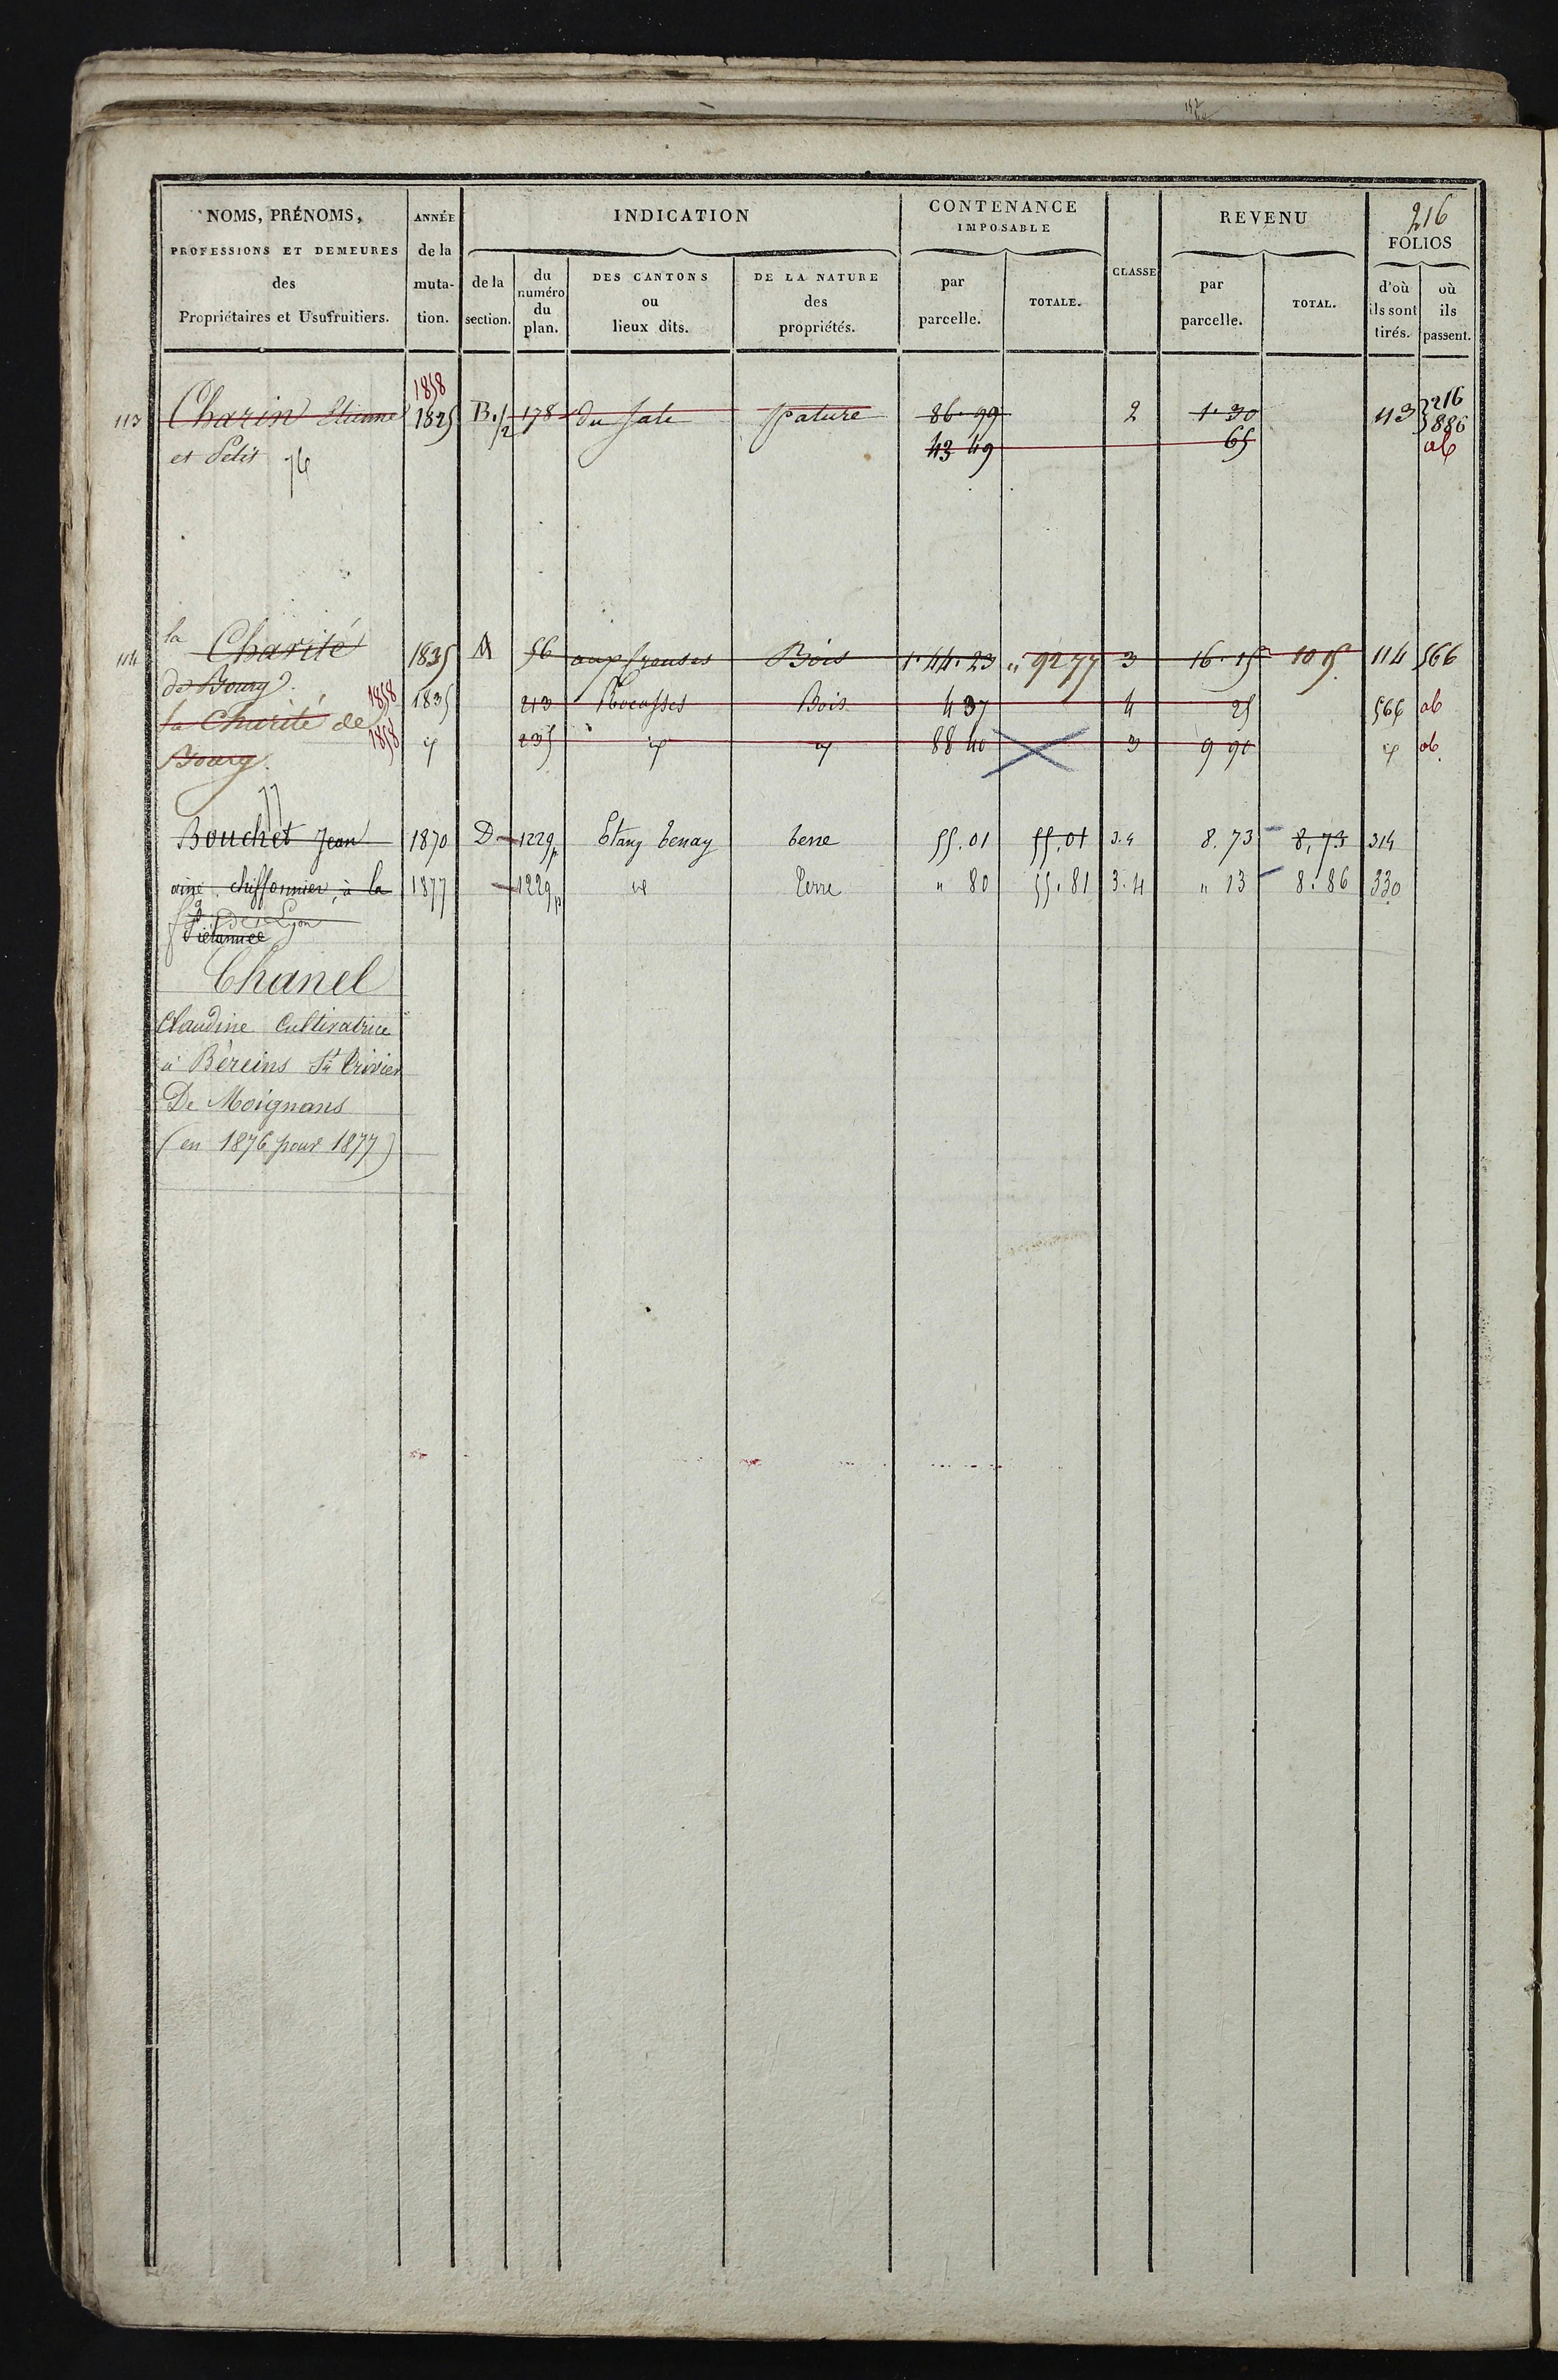 216
NOMS, PRÉNOMS, PROFESSIONS ET DEMEURES des Propriétaires et Usufruitiers.
ANNÉE de la muta- tion.
INDICATION
de la section.
du numéro du plan.
DES CANTONS ou lieux dits.
DE LA NATURE des propriétés.
CONTENANCE IMPOSABLE
par parcelle.
TOTALE.
CLASSE
REVENU
par parcelle.
TOTAL.
FOLIOS
d'où ils sont tirés.
où ils passent.
1858
113 Charin Etienne 1825 B. 1/2 178 du Sale Pature 86.99 2 1.30 113 216
886
et Petit 43 49 65 ab
76
la Charité 1835 A 56 Bois 1.44.23 " 92 77 3 16.15 10 15 114 566
de Bourg
1858 1835 213 Rocasses Bois 4 37 4 25 566 ab
la Charité de
1858 id 235 id id 88 40 3 9 90 id ab
Bourg.
77
Bouchet Jean 1870 D 1229p Etang tenay terre 55.01 55.01 3.4 8.73 8.73 314
ainé chiffonnier, à la 1877 1229p id Terre " 80 55.81 3.4 " 13 8.86 330
de Lyon
Chanel
Claudine Cultivatrice
à Béreins St Trivier
De Moignans
(en 1876 pour 1877)